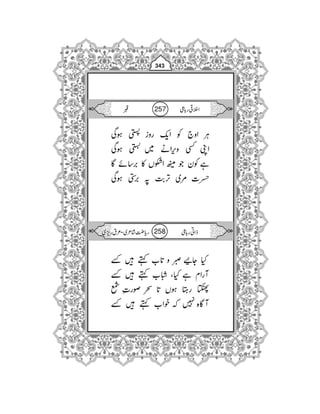 343
اخلاقی رباعی 257 فخر
ہر اوج کو ایک روز پستی ہوگی
اپنی کسی ویرانے میں بستی ہوگی
ہے کون جو مینھ اشکوں کا برسائے گا
حسرت مری تربت پہ برستی ہوگی
ذاتی رباعی 258 ریاضت شاعری۔عرق ریزی
کیا چاہیے صبر و تاب کہتے ہیں کسے
آرام ہے کیا، شباب کہتے ہیں کسے
پھنکتا رہتا ہوں تا سحر صورت شمع
آگاہ نہیں کہ خواب کہتے ہیں کسے